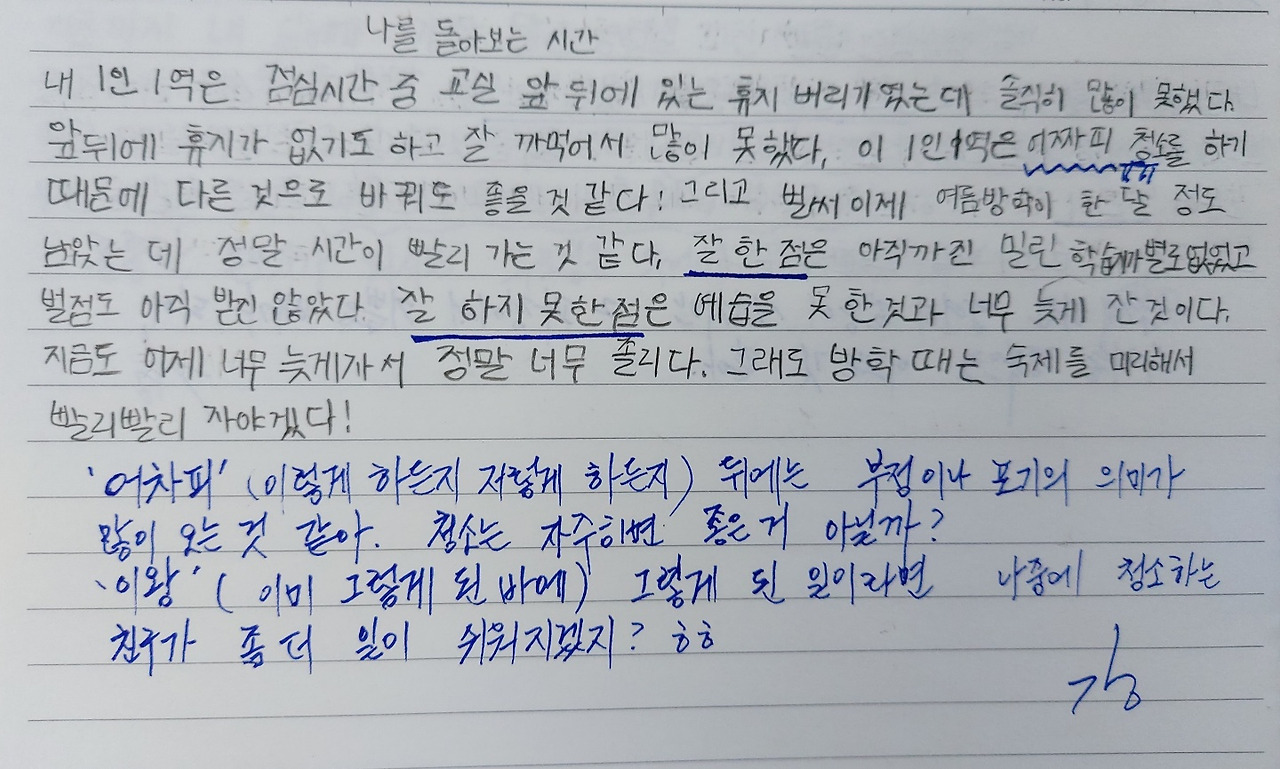 나를 돌아보는 시간
내 1인 1역은 점심시간 중 교실 앞 뒤에 있는 휴지 버리기 였는데 솔직히 많이 못했다.
앞뒤에 휴지가 없기도 하고 잘 까먹어서 많이 못했다, 이 1인 1역은 어짜피 청소를 하기
때문에 다른 것으로 바꿔도 좋을것 같다! 그리고 벌써 이제 여름방학이 한 달 정도
남았는 데 정말 시간이 빨리 가는 것 같다, 잘 한 점은 아직까진 밀린 학습지가 별로 없었고
벌점도 아직 받진 않았다. 잘 하지 못한 점은 예습을 못 한것과 너무 늦게 잔 것이다.
지금도 어제 너무 늦게자서 정말 너무 졸리다. 그래도 방학 때는 숙제를 미리해서
빨리빨리 자야겠다!
'어차피' (이렇게 하든지 저렇게 하든지) 뒤에는 부정이나 포기의 의미가
많이 오는 것 같아. 청소는 자주하면 좋은거 아닐까?
'이왕' (이미 그렇게 된 바에) 그렇게 된 일이라면 나중에 청소하는
친구가 좀 더 일이 쉬워지겠지? ㅎㅎ